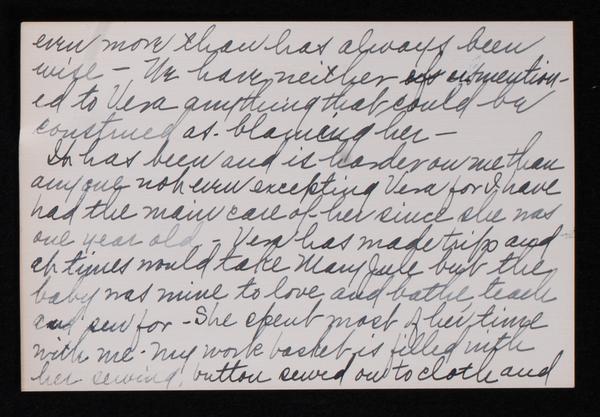 even more than has always been
wise - We have neither of us mention-
ed to Vera anything that could be
construed as blaming her -
It has been and is harder on me than
anyone not even excepting Vera for I have
had the main care of her since she was
one year old - Vera has made trips and
at times would take Mary Jule but the
baby was mine to love and bathe teach
and sew for - She spent most of her time
with me - My work basket is filled with
her sewing, button sewed on to cloth and